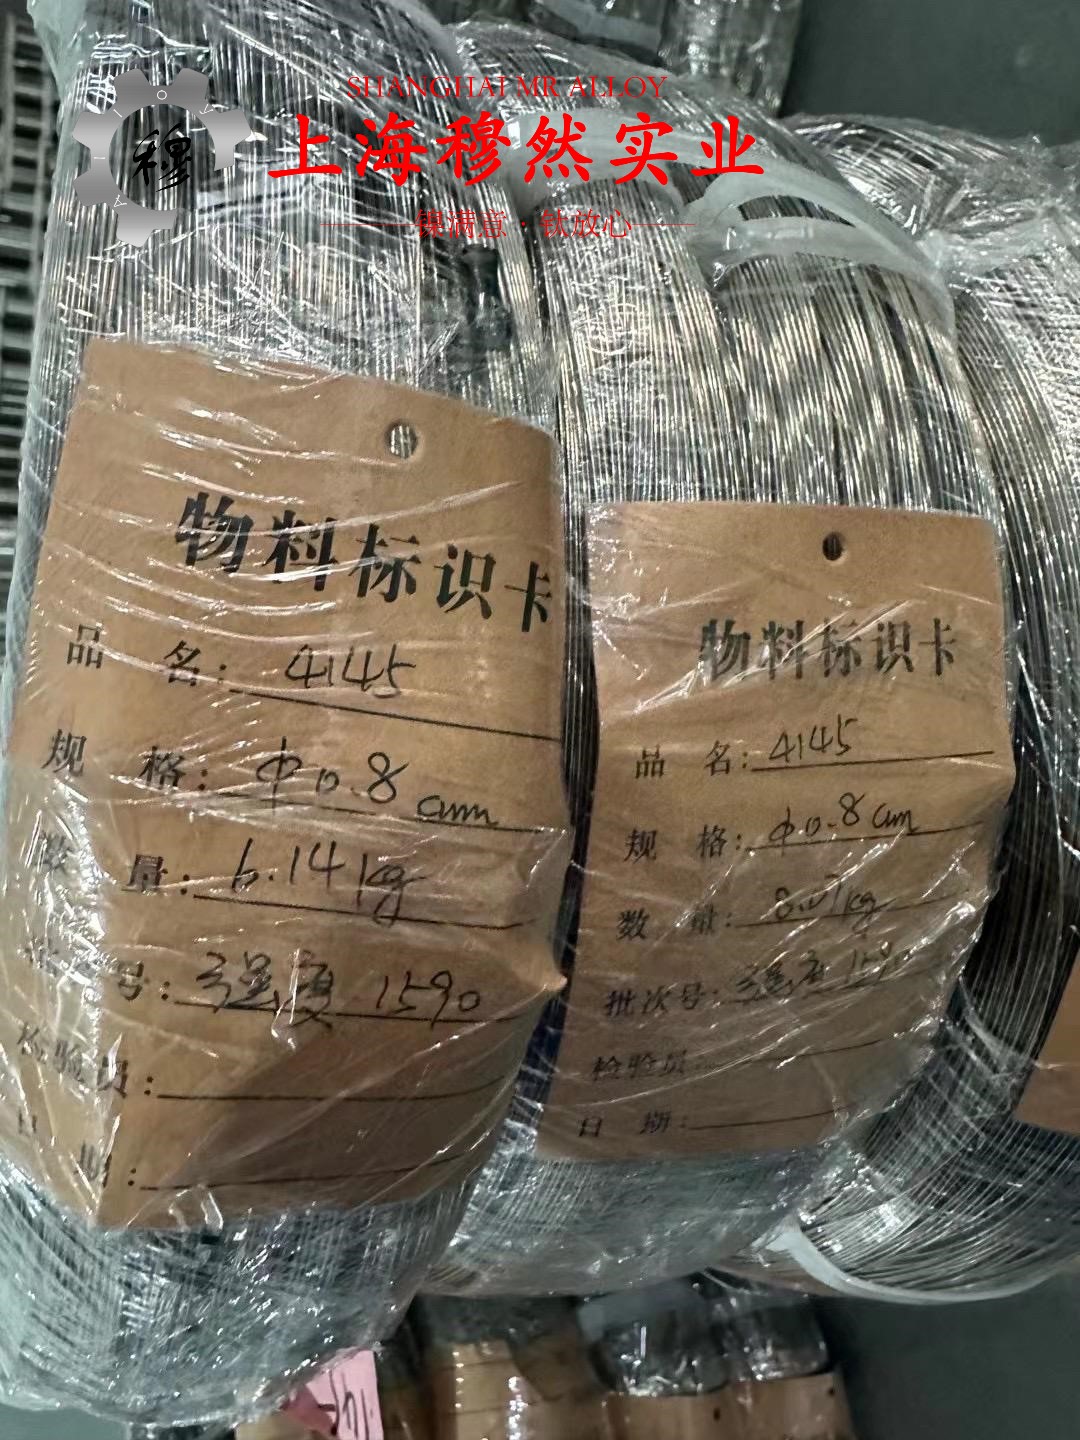 SHANGHAI MR ALLOY
穆
上海穆然实业
镍满意·钛放心
物料标识卡
品 名: 4145
规 格: Φ0.8 mm
数 量: 6.14kg
号: 强度 1590
检验员:
日 期:
物料标识卡
品 名: 4145
规 格: Φ0.8 mm
数 量: kg
批次号: 强度 1590
检验员:
日 期: